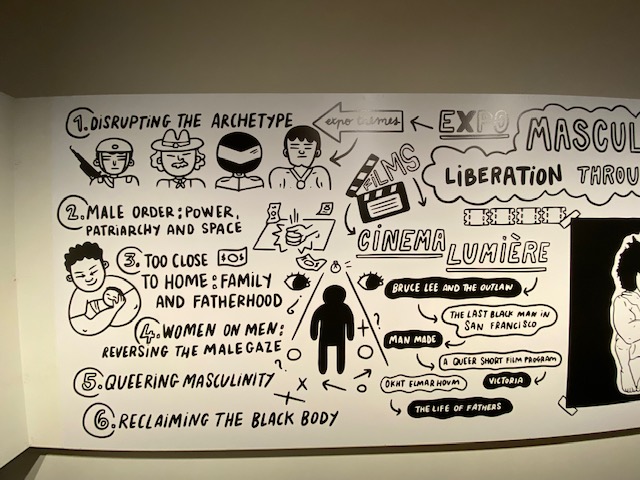 1. DISRUPTING THE ARCHETYPE
expo themes
EXPO
MASCUL
LIBERATION THROU
FILMS
2. MALE ORDER: POWER,
PATRIARCHY AND SPACE
3. TOO CLOSE
TO HOME: FAMILY
AND FATHERHOOD
4. WOMEN ON MEN:
REVERSING THE MALE GAZE
5. QUEERING MASCULINITY
6. RECLAIMING THE BLACK BODY
CINEMA
LUMIÈRE
BRUCE LEE AND THE OUTLAW
THE LAST BLACK MAN IN
SAN FRANCISCO
MAN MADE
A QUEER SHORT FILM PROGRAM
VICTORIA
THE LIFE OF FATHERS